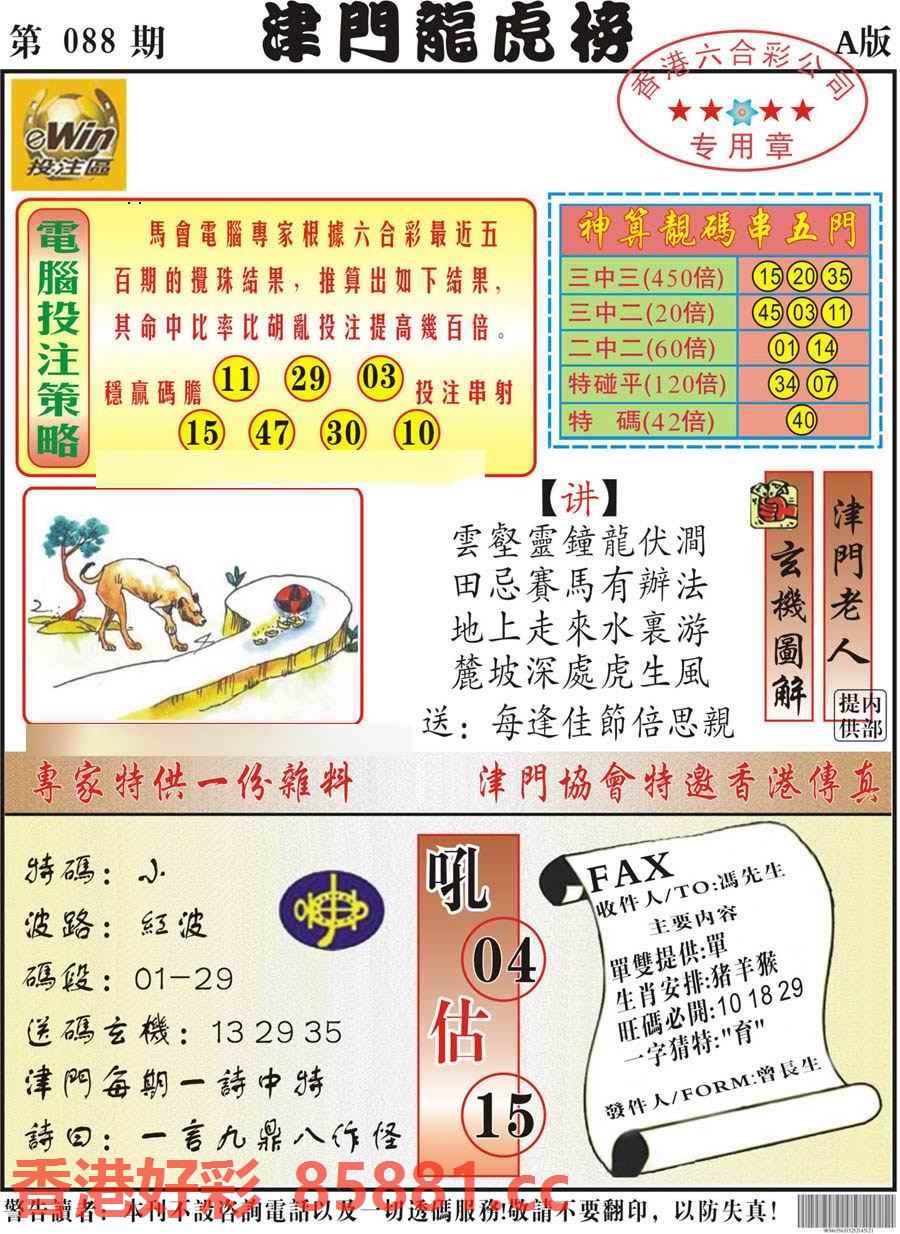 第 088 期
津門龍虎榜
A版
香港六合彩公司
专用章
eWin
投注區
電腦投注策略
馬會電腦專家根據六合彩最近五
百期的攪珠結果，推算出如下結果，
其命中比率比胡亂投注提高幾百倍。
穩贏碼膽 11 29 03 投注串射
15 47 30 10
神算靚碼串五門
三中三(450倍) 15 20 35
三中二(20倍) 45 03 11
二中二(60倍) 01 14
特碰平(120倍) 34 07
特 碼(42倍) 40
【讲】
雲壑靈鐘龍伏澗
田忌賽馬有辦法
地上走來水裏游
麓坡深處虎生風
送：每逢佳節倍思親
玄機圖解
津門老人
内部提供
專家特供一份雜料
津門協會特邀香港傳真
特碼：小
波路：紅波
碼段：01-29
送碼玄機：13 29 35
津門每期一詩中特
詩曰：一言九鼎八作怪
吼
04
估
15
FAX
收件人/TO:馮先生
主要内容
單雙提供:單
生肖安排:猪羊猴
旺碼必開:10 18 29
一字猜特:"育"
發件人/FORM:曾長生
香港好彩 85881.cc
警告讀者：本刊不設咨詢電話以及一切透碼服務!敬請不要翻印，以防失真!